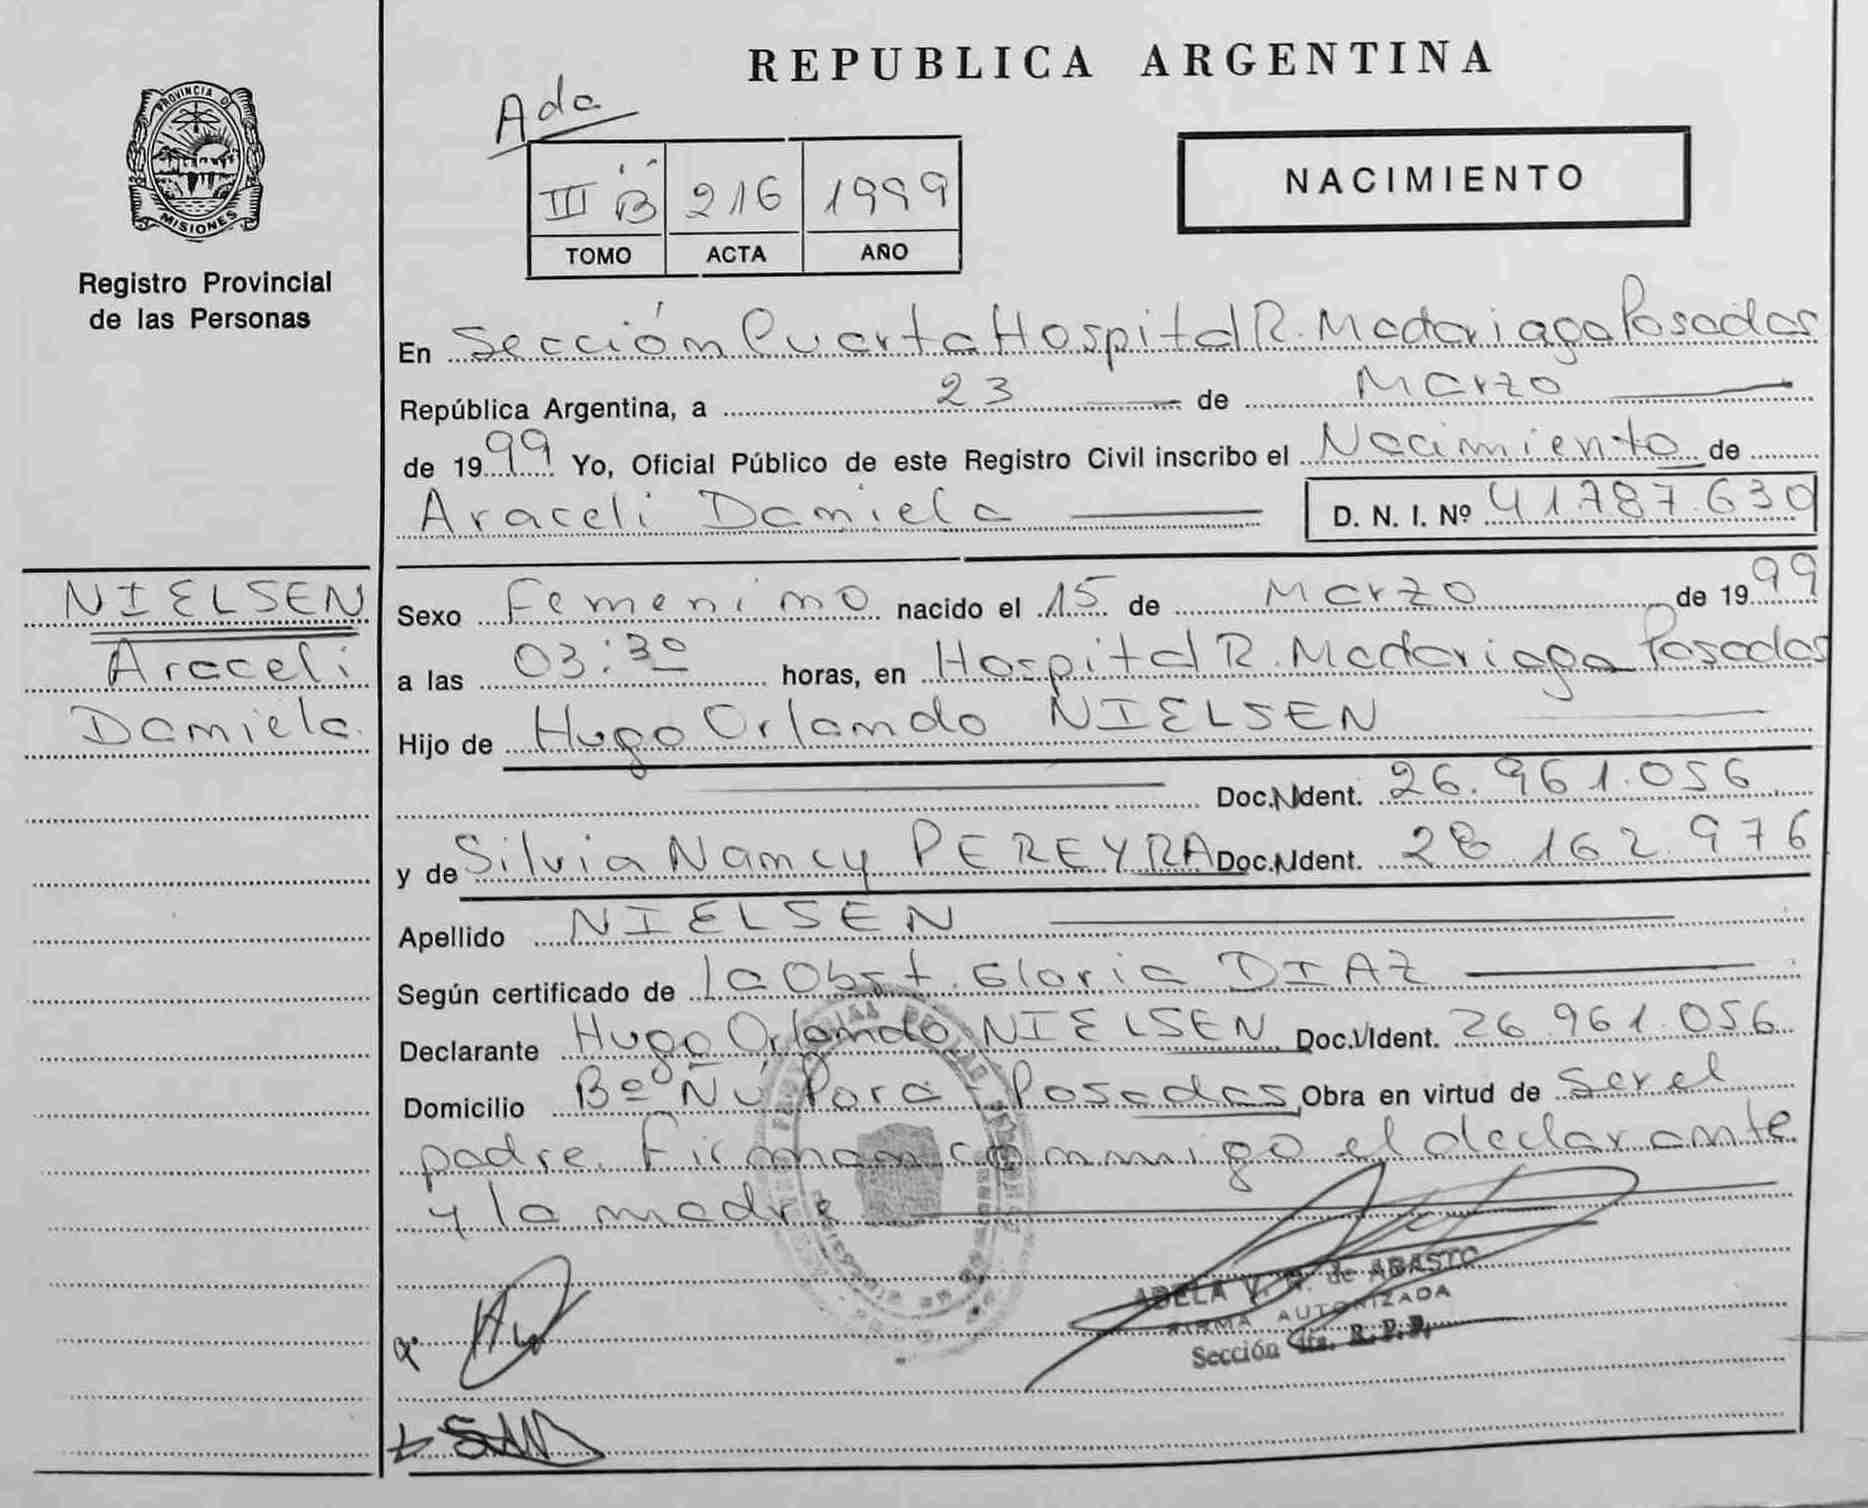 REPUBLICA ARGENTINA
Ada
PROVINCIA DE
MISIONES
Registro Provincial
de las Personas
III B 216 1999
TOMO ACTA AÑO
NACIMIENTO
En Sección Cuarta Hospital R. Madariaga Posadas
República Argentina, a 23 de Marzo
de 1999 Yo, Oficial Público de este Registro Civil inscribo el Nacimiento de
Araceli Daniela D. N. I. Nº 41.787.630
NIELSEN
Araceli
Daniela.
Sexo Femenino nacido el 15 de Marzo de 1999
a las 03:30 horas, en Hospital R. Madariaga Posadas
Hijo de Hugo Orlando NIELSEN
Doc. Ident. 26.961.056
y de Silvia Nancy PEREYRA Doc. Ident. 28.162.976
Apellido NIELSEN
Según certificado de la Obst. Gloria DIAZ
Declarante Hugo Orlando NIELSEN Doc. Ident. 26.961.056
Domicilio Bº Ñu Pora - Posadas Obra en virtud de ser el
padre. Firman conmigo el declarante
y la madre
ADELA V. de ABASTO
FIRMA AUTORIZADA
Sección 4ta. R. P. P.